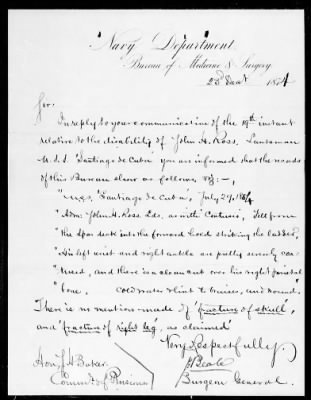 Navy Department.
Bureau of Medicine & Surgery
23d 1874
Sir,
In reply to your communication of the 19th instant
relative to the disability of John H. Ross, Landsman
U.S.S. "Santiago de Cuba" you are informed that the records
of this Bureau show as follows, viz:-,
"U.S.S. "Santiago de Cuba", July 29, 1864
"Adm. John H. Ross, Lds. as with "Contusio", Fell from
"the Spar deck into the forward hold striking the ladder,
"His left wrist and right are pretty severely con-
"tused, and there is a clean cut over his right parietal
"bone. Cold water & lint to bruises, and wound."
There is no mention made of 'fracture of skull',
and 'fracture of right leg, as claimed'
Very Respectfully,
J Beale
Surgeon General.
Hon J H Baker
Comm'r of Pensions